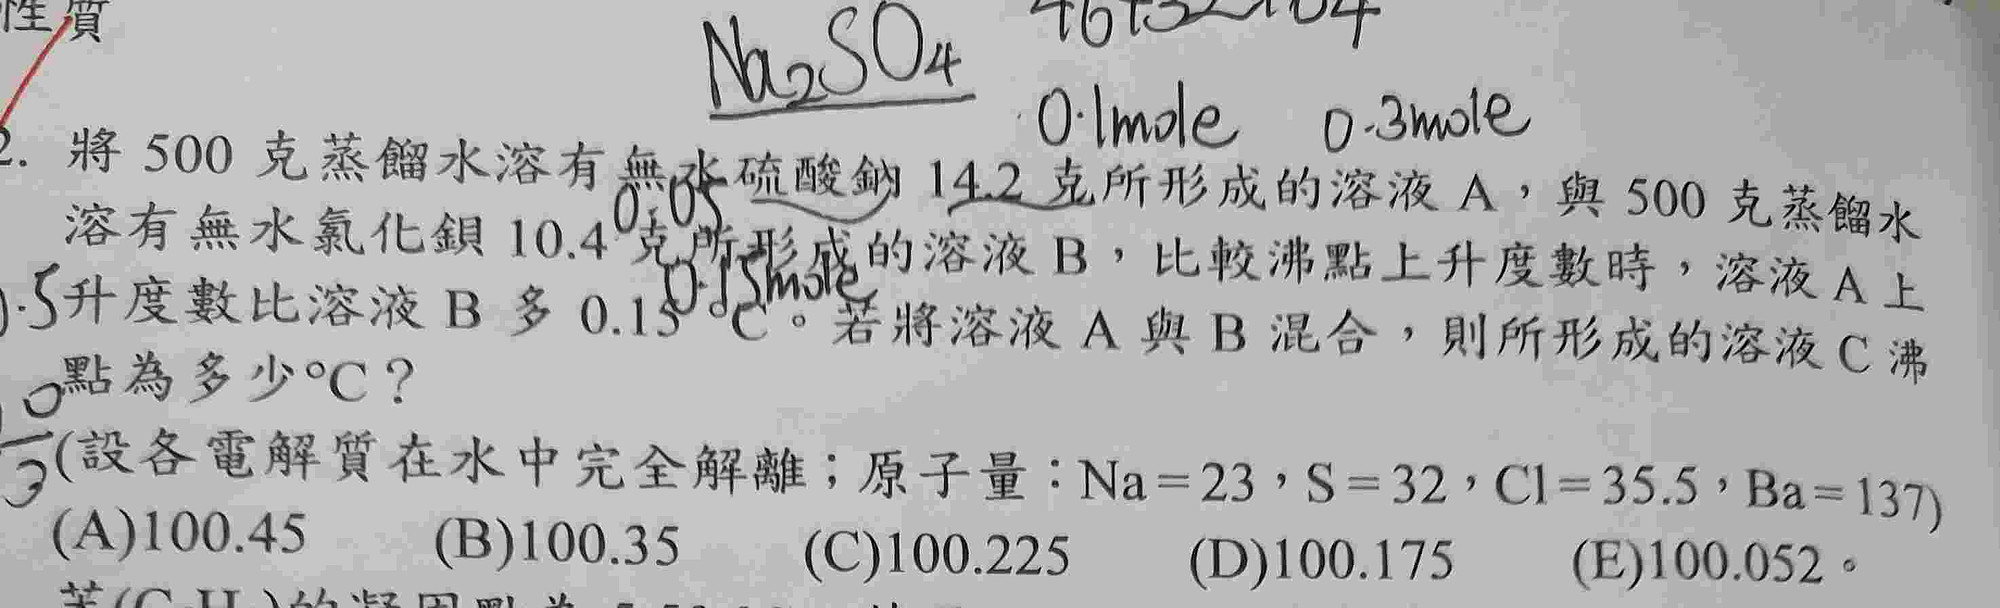 性質
Na₂SO₄
0.1mole 0.3mole
2. 將 500 克蒸餾水溶有無水硫酸鈉 14.2 克所形成的溶液 A，與 500 克蒸餾水
0.05
溶有無水氯化鋇 10.4 克所形成的溶液 B，比較沸點上升度數時，溶液 A 上
0.15mole
升度數比溶液 B 多 0.15 °C。若將溶液 A 與 B 混合，則所形成的溶液 C 沸
點為多少°C？
(設各電解質在水中完全解離；原子量：Na＝23，S＝32，Cl＝35.5，Ba＝137)
(A)100.45 (B)100.35 (C)100.225 (D)100.175 (E)100.052。